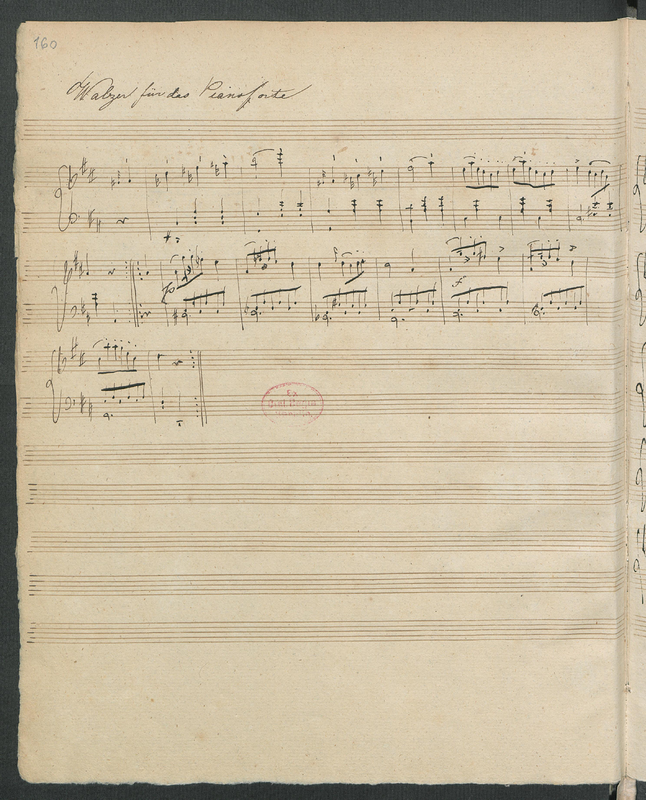 160
Walzer für das Pianoforte
p
f
Ex